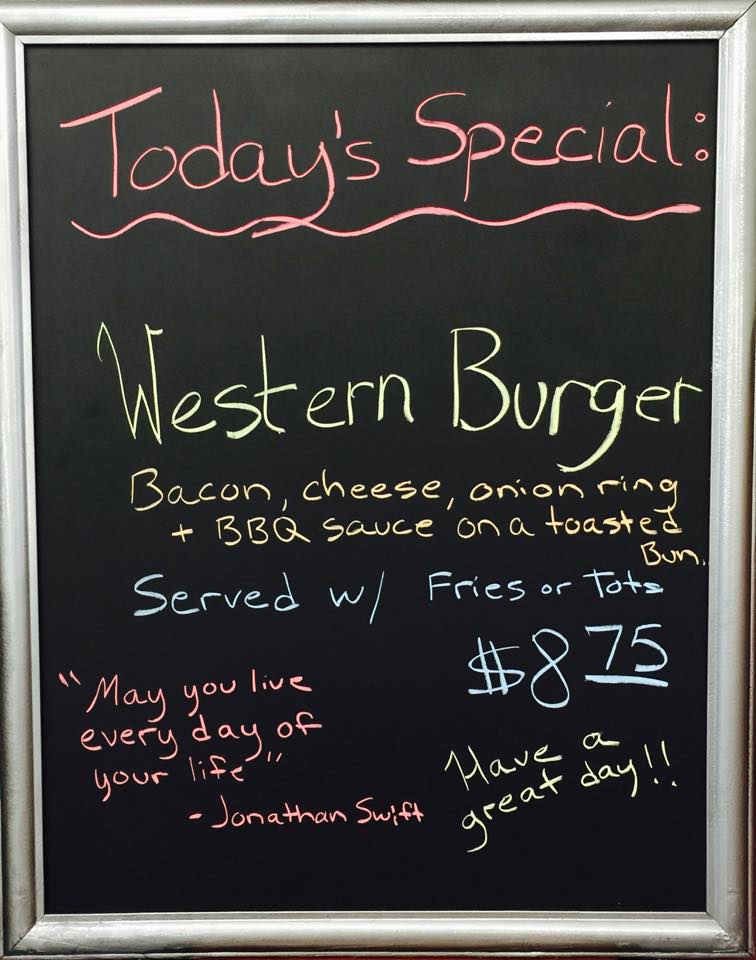 Today's Special:
Western Burger
Bacon, cheese, onion ring
+ BBQ sauce on a toasted
Bun.
Served w/ Fries or Tots
$8 75
"May you live
every day of
your life"
- Jonathan Swift
Have a
great day!!